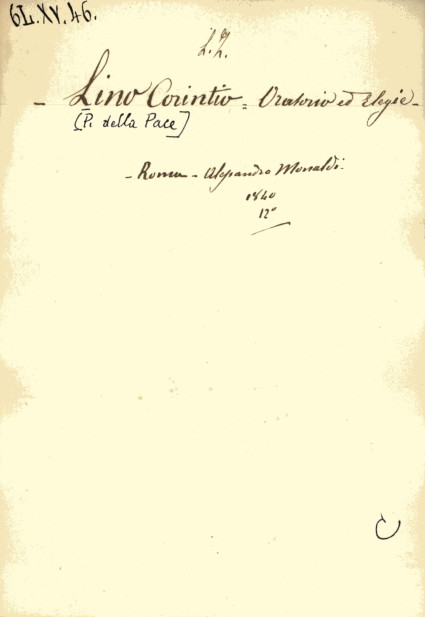 6L.XV.46.
L.Z.
- Lino Corintio = Oratorio ed Elegie -
[P. della Pace]
- Roma - Alessandro Monaldi.
1840
12°